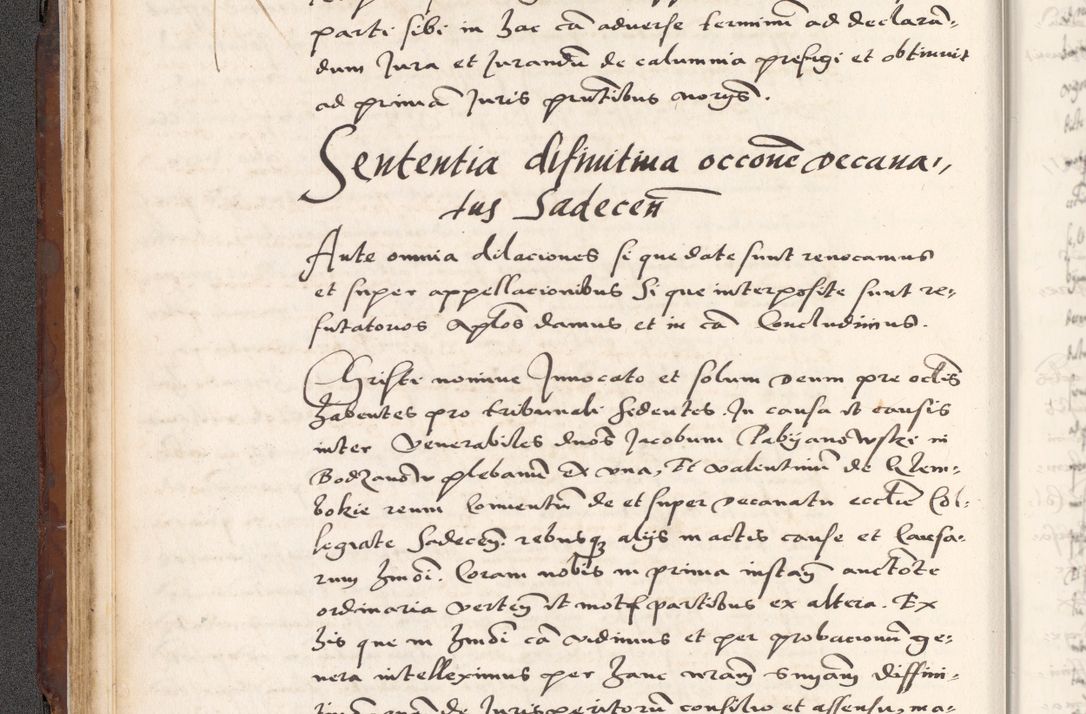 parti sibi in hac cā adverse terminū ad declaran-
dum Jura et Jurandū de calumnia prefigi et obtinuit
ad primā Juris prntibus norgs.
Sententia difinitiva occone decana-
tus Sadeceñ
Ante omnia dilaciones si que date sunt revocamus
et super appellacionibus Si que interposite sunt re-
futatorios Aplos damus et in cā Concludimus.
Christi nomine Invocato et solum deum pre oclis
habentes pro tribunali Sedentes. In causa et causis
inter Venerabiles dnos Jacobum Pabyanowski in
Bodzanow plebanū ex una, Et Valentinū de Clem-
bokie reum Conventū de et super decanatu ecclie Col-
legiate Sadeceñ. rebusq aliis in actis cause et Causa-
rum hmōi. Coram nobis in prima instañ auctote
ordinaria verteñ et mot partibus ex altera. Ex
his que in hmōi cā vidimus et per probacionum ge-
nera intelleximus per hanc nrām snīam diffini-
de Jurisperitorum consilio et assensu, ma-